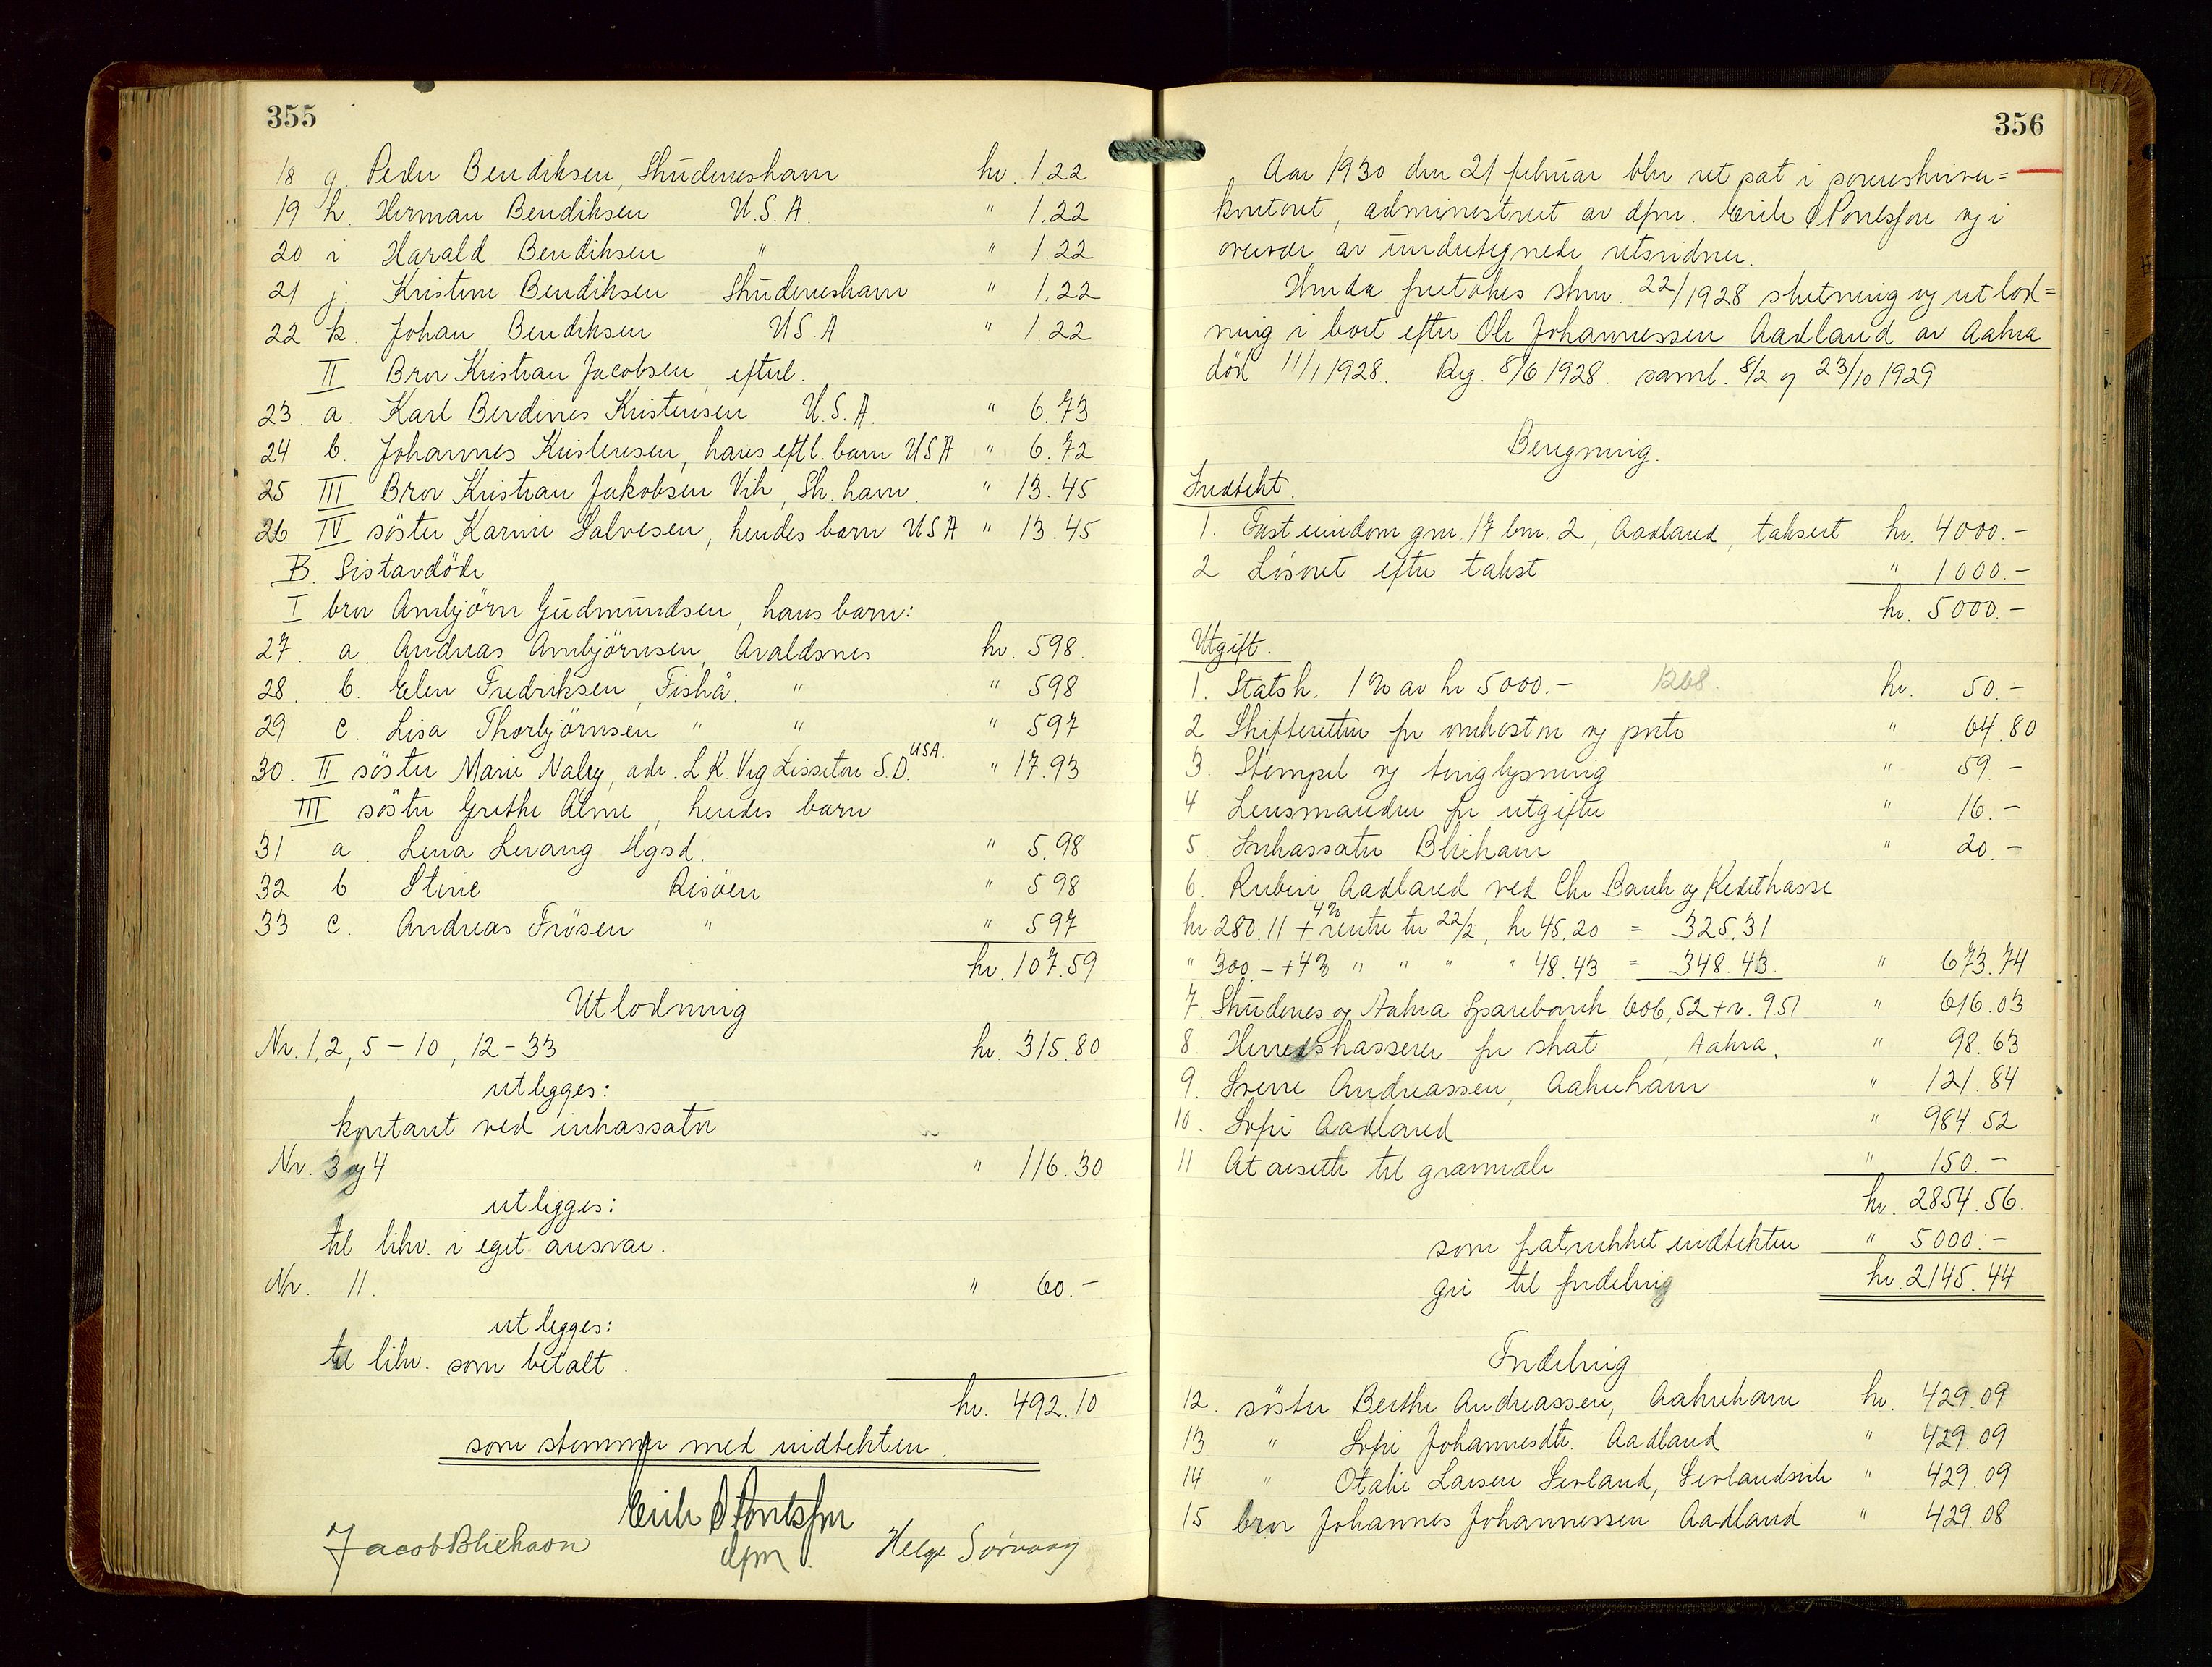 355
18 g. Peder Bendiksen, Skudeneshavn kr. 1.22
19 h. Herman Bendiksen U.S.A. " 1.22
20 i Harald Bendiksen " " 1.22
21 j. Kristine Bendiksen Skudeneshavn " 1.22
22 k. Johan Bendiksen U.S.A " 1.22
II Bror Kristian Jacobsen, efterl.
23. a. Karl Berdines Kristensen U.S.A. " 6.73
24 b. Johannes Kristensen, hans eftl. barn USA " 6.72
25 III Bror Kristian Jakobsen Vik, Sk. havn. " 13.45
26 IV søster Karine Salvesen, hendes barn USA " 13.45
B. Sistavdöde
I bror Arnbjörn Gudmundsen, hans barn:
27. a. Andreas Arnbjörnsen, Avaldsnes kr. 598.
28. b. Elen Fredriksen, Fiskå. " " 598
29 c. Lisa Thorbjörnsen " " " 597
30. II söster Marie Naley, adr. L.K. Vig Lissiton S.D. USA. " 17.93
III söster Grethe Alme, hendes barn
31 a. Lena Levang Hgsd. " 5.98
32 b Stine Risöen " 598
33 c. Andreas Frösen " " 597
kr. 107.59
Utlodning
Nr. 1,2, 5-10, 12-33 kr. 315.80
utlegges:
kontant ved inkassator
Nr. 3 og 4 " 116.30
utlegges:
til likv. i eget ansvar.
Nr. 11. " 60.-
utlegges:
til likv. som betalt.
kr. 492.10
som stemmer med indtekten.
Jacob Blikhavn dfm. Helge Sørvaag
356
Aar 1930 den 21 februar blev ret sat i sorenskriver=
kontoret, administrert av dfm. Erik og i
overvær av undertegnede retsvidner.
Herda foretokes skm. 22/1928 slutning og utlod=
ning i boet efter Ole Johannessen Aadland av Aakra
död 11/1 1928. Reg. 8/6 1928. saml. 8/2 og 23/10 1929
Beregning.
Indtekt.
1. Fast eiendom gnr. 17 bnr. 2, Aadland, taksert kr. 4000.-
2 Lösöret efter takst " 1000.-
kr. 5000.-
Utgift.
1. Statsk. 1% av kr 5000.- 1268. kr. 50.-
2 Skifteretten for omkostn og porto " 64.80
3. Stempel og tinglysning " 59.-
4 Lensmanden for utgifter " 16.-
5 Inkassator Blikhavn " 20.-
6. Ruben Aadland ved Chr Bank og Kreditkasse
kr 280.11 + 4% renter til 22/2, kr 45.20 = 325.31
" 300.- + 4% " " " " 48.43 = 348.43. " 673.74
7. Skudenes og Aakra Sparebank 606,52 + r. 951 " 616.03
8. Herredskasserer for skat, Aakra. " 98.63
9. Sverre Andreassen, Aakrehavn " 121.84
10. Sofie Aadland " 984.52
11 At avsette til gravmæle " 150.-
kr. 2854.56.
som fatrukket indtekten " 5000.-
gir til fordeling kr. 2145.44
Fordeling
12. söster Berthe Andreassen, Aakrehavn kr. 429.09
13 " Sofie Johannesdtr. Aadland " 429.09
14 " Otalie Larsen Sevland, Sevlandsvik " 429.09
15 bror Johannes Johannessen Aadland " 429.08